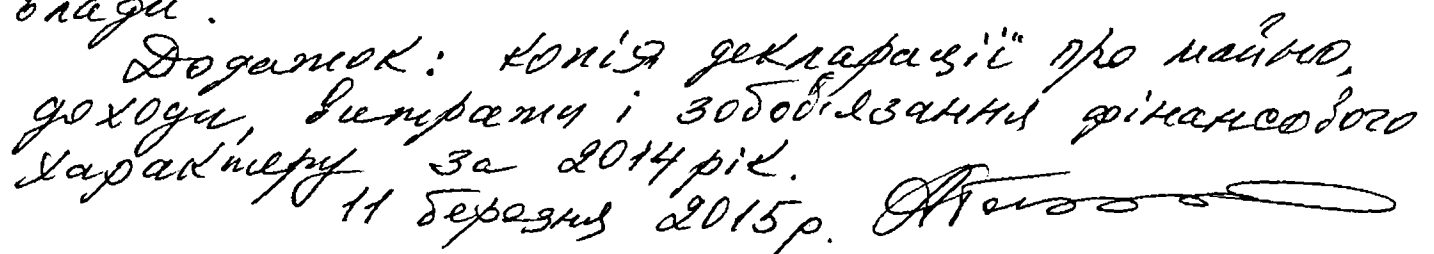 влади.
Додаток: копія декларації про майно,
доходи, витрати і зобов'язання фінансового
характеру за 2014 рік.
11 березня 2015 р.